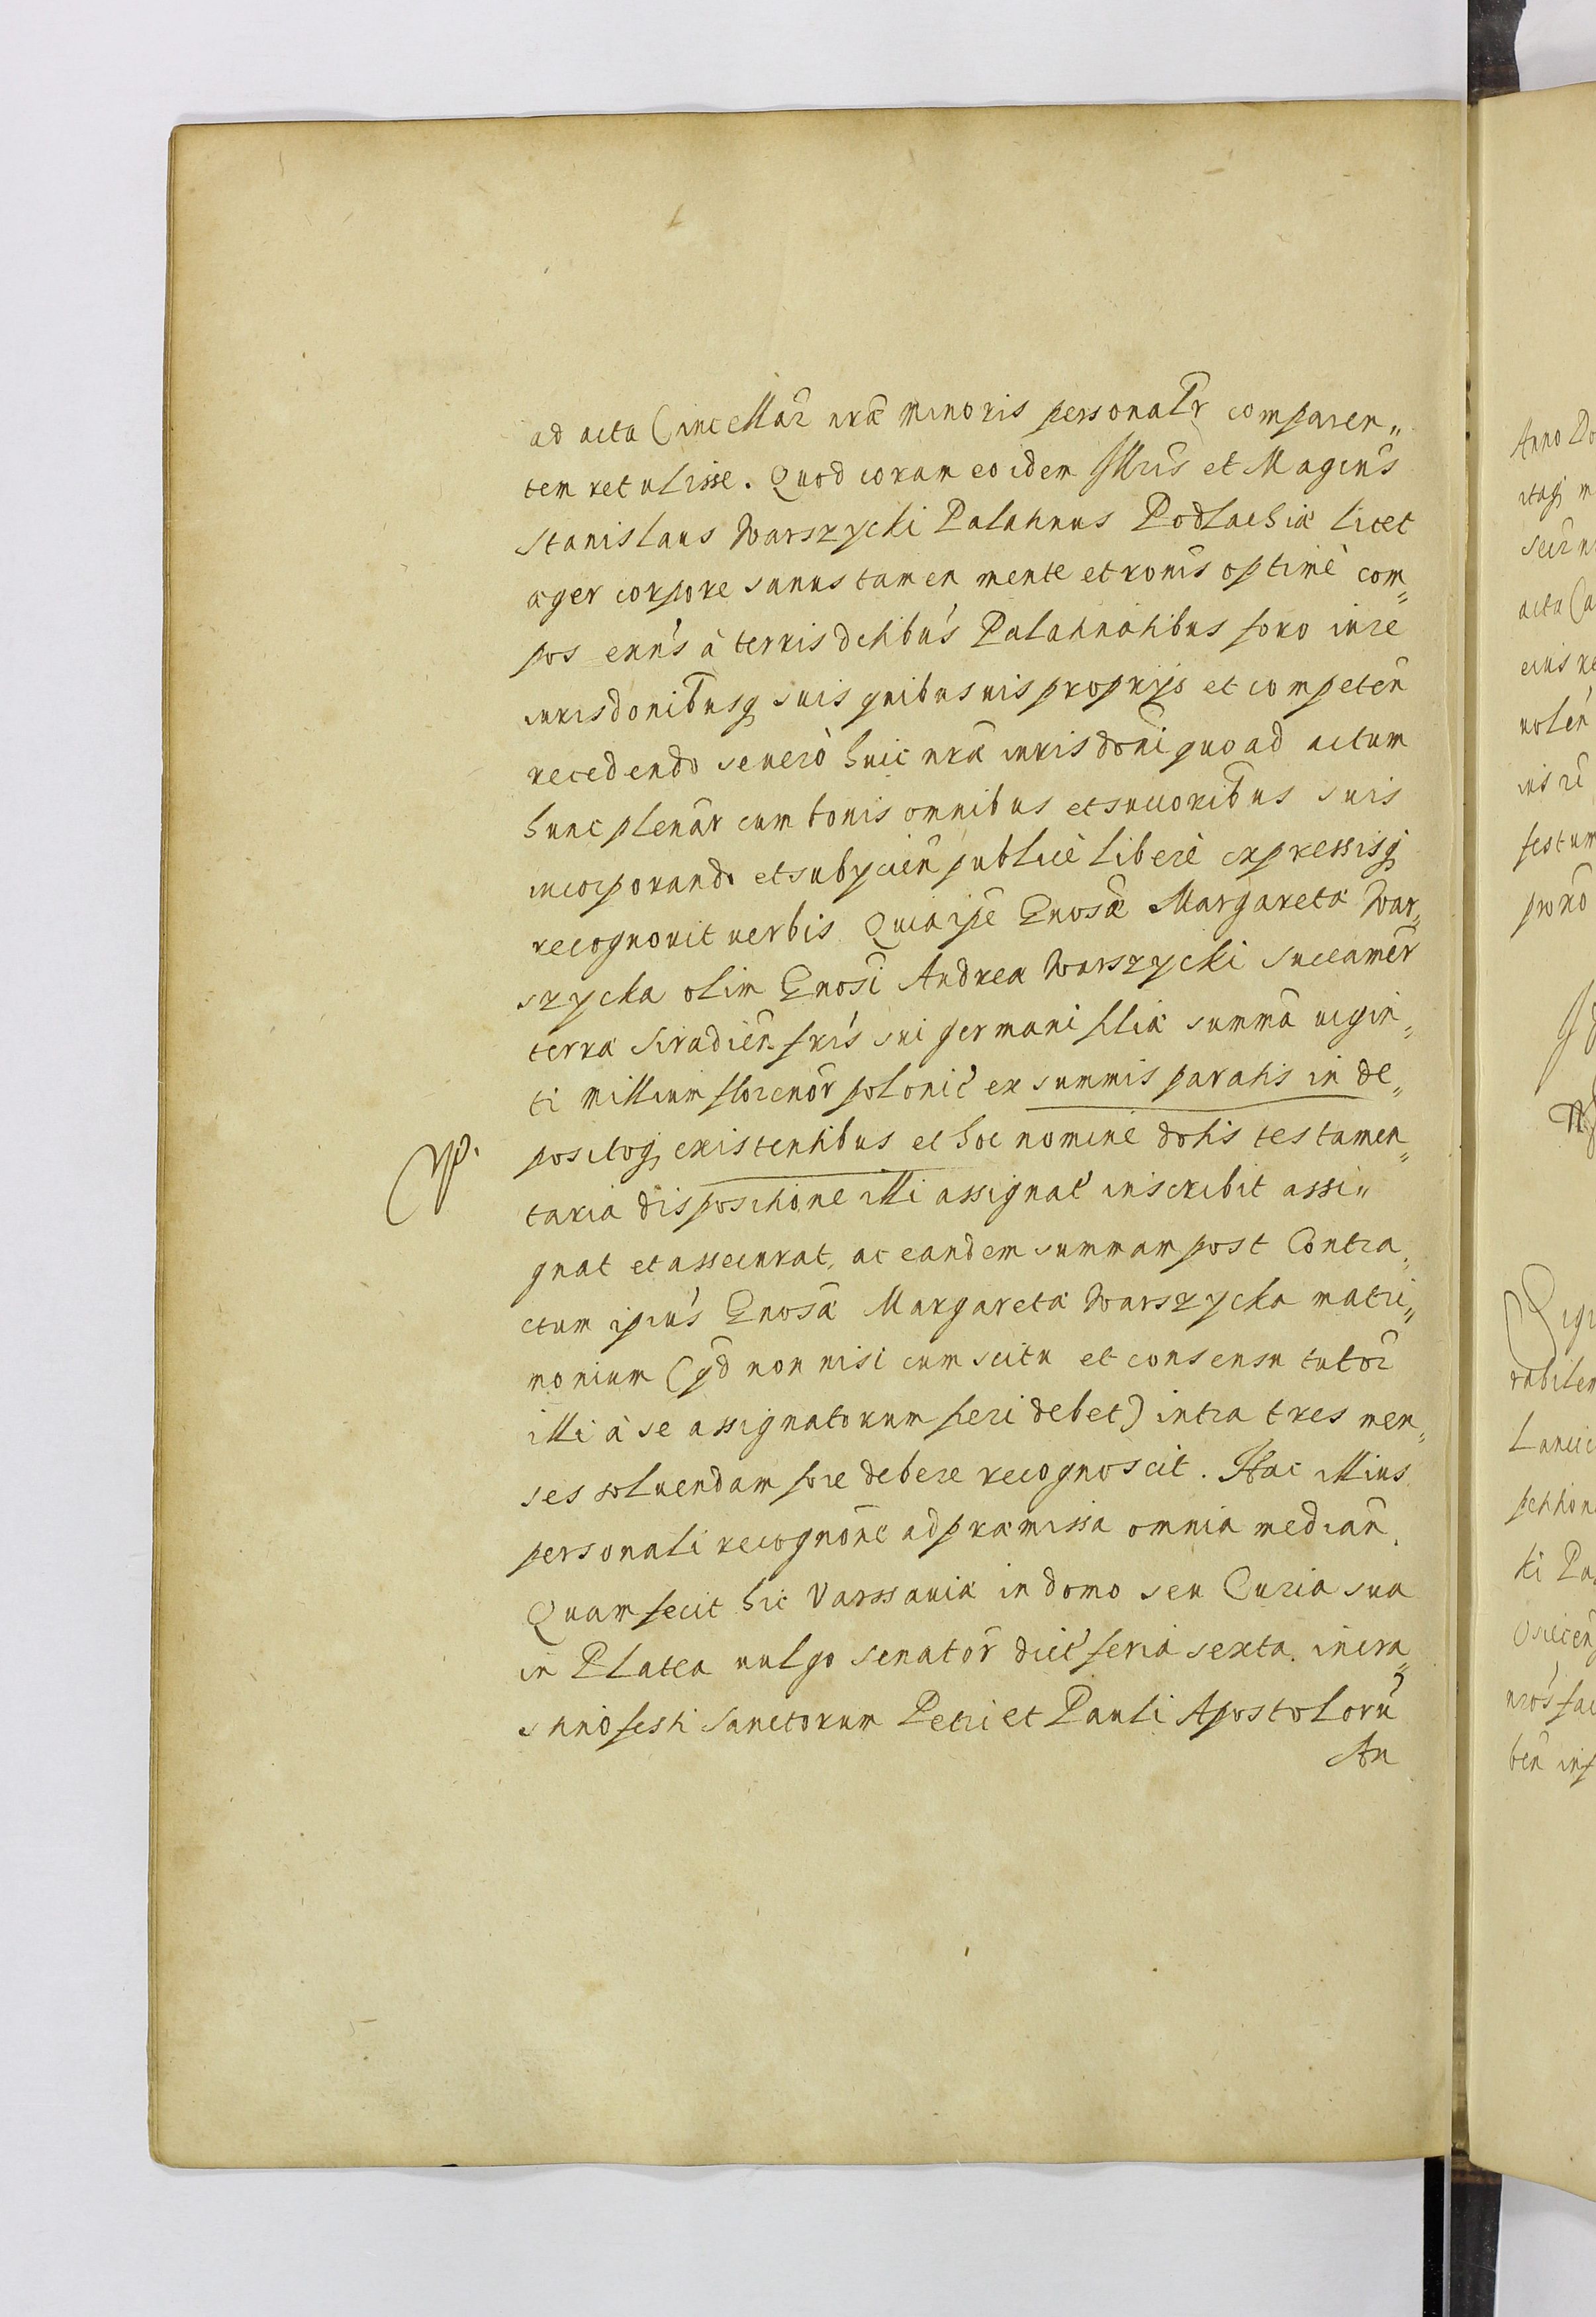 ad acta Cancellar nræ minoris personalr comparen„
tem retulisse. Quod coram eo idem Illris et Magcus
Stanislaus Warszycki Palatinus Podlachiæ licet
æger corpore sanus tamen mente et ronis optimè com„
pos exns à terris dctibus Palatinatibus foro iure
iurisdonibusq suis quibusuis proprijs et competen
recedendo seuerò huic nræ iurisdoni quoad actum
hunc plenar cum bonis omnibus et succoribus suis
incorporando et subycien publicè liberè expressisq
recognouit uerbis Quia ipse Gnosæ Margaretæ War„
szycka olim Gnosi Andreæ Warszycki Succamer
terræ Siradien fris sui germani filiæ summā uigin„
ti millium florenor polonic ex summis paratis in de„
positoq existentibus et hoc nomine dotis testamen„
taria dispositione illi assignat inscribit assi„
gnat et assecurat, ac eandem summam post Contra„
ctum ipius Gnosæ Margaretæ Warszycka matri„
monium (qd non nisi cum scitu et consensu tutor
illi à se assignatorum fieri debet) intra tres men„
ses soluendam fore debere recognoscit. Hac illius
personali recognone ad præmissa omnia median.
Quam fecit hic Varssauiæ in domo seu Curia sua
in Platea uulgo Senator dict feria sexta in cra„
stino festi Sanctorum Petri et Pauli Apostolorū
An
Anno Do
acta Ca
uolen
festum
rabilem
ki Pa